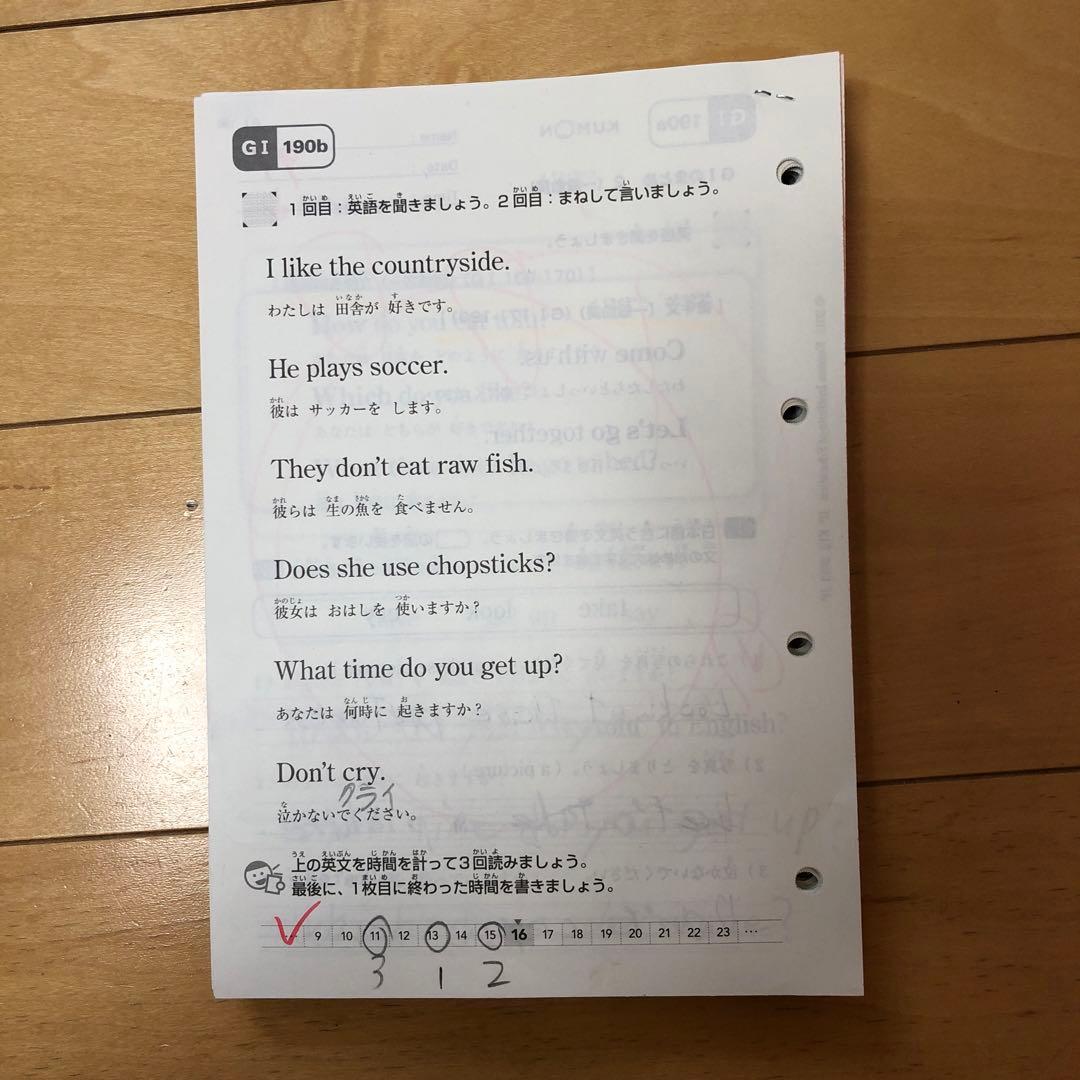 GI 190b
1回目：英語を聞きましょう。2回目：まねして言いましょう。
I like the countryside.
わたしは 田舎が 好きです。
He plays soccer.
彼は サッカーを します。
They don't eat raw fish.
彼らは 生の魚を 食べません。
Does she use chopsticks?
彼女は おはしを 使いますか？
What time do you get up?
あなたは 何時に 起きますか？
Don't cry.
クライ
泣かないでください。
上の英文を時間を計って3回読みましょう。
最後に、1枚目に終わった時間を書きましょう。
… 9 10 11 12 13 14 15 16 17 18 19 20 21 22 23 …
3 1 2